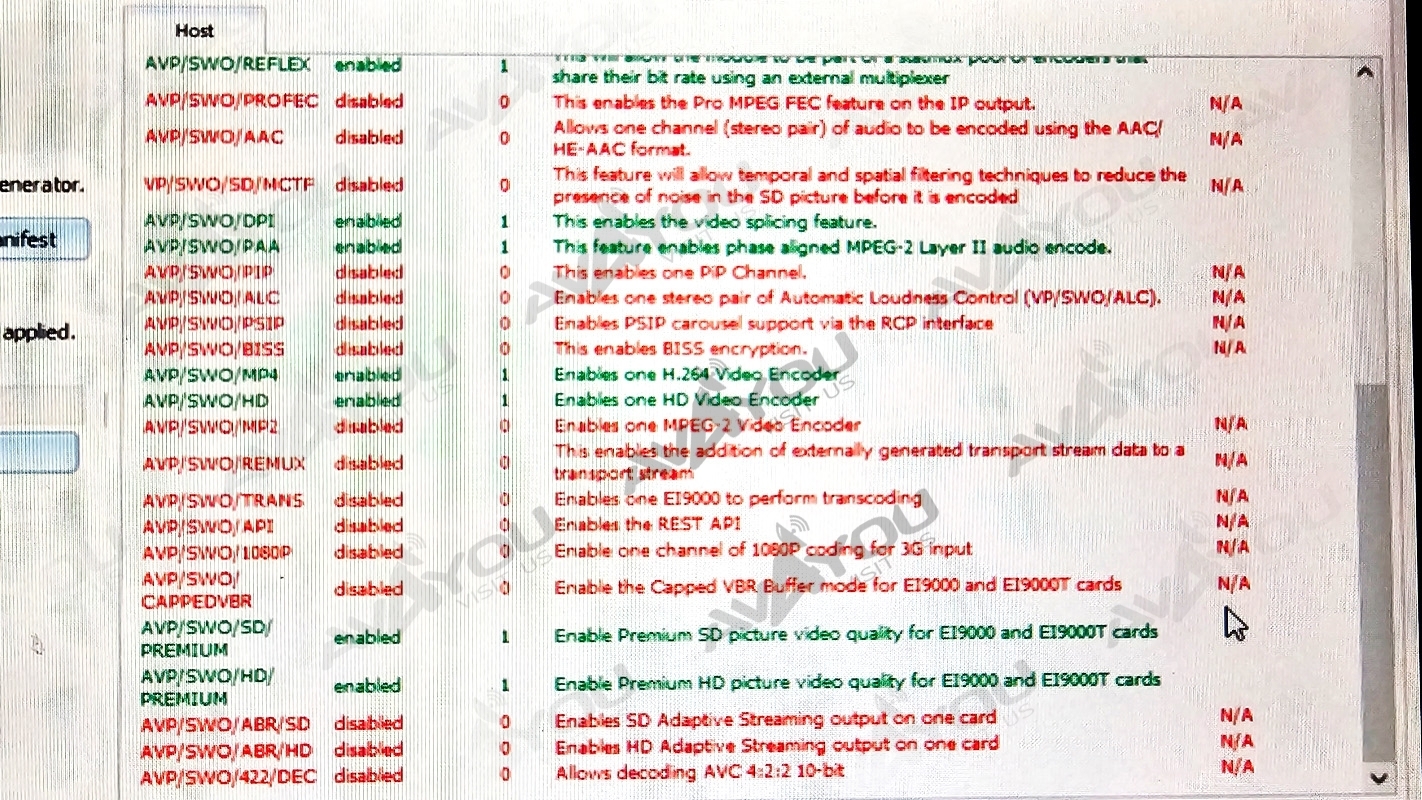 Host
AVP/SWO/REFLEX enabled 1 This will allow the module to be part of a statmux pool of encoders that
share their bit rate using an external multiplexer
AVP/SWO/PROFEC disabled 0 This enables the Pro MPEG FEC feature on the IP output. N/A
AVP/SWO/AAC disabled 0 Allows one channel (stereo pair) of audio to be encoded using the AAC/
HE-AAC format. N/A
enerator.
VP/SWO/SD/MCTF disabled 0 This feature will allow temporal and spatial filtering techniques to reduce the
presence of noise in the SD picture before it is encoded N/A
AVP/SWO/DPI enabled 1 This enables the video splicing feature.
anifest
AVP/SWO/PAA enabled 1 This feature enables phase aligned MPEG-2 Layer II audio encode.
AVP/SWO/PIP disabled 0 This enables one PiP Channel. N/A
AVP/SWO/ALC disabled 0 Enables one stereo pair of Automatic Loudness Control (VP/SWO/ALC). N/A
AVP/SWO/PSIP disabled 0 Enables PSIP carousel support via the RCP interface N/A
applied.
AVP/SWO/BISS disabled 0 This enables BISS encryption. N/A
AVP/SWO/MP4 enabled 1 Enables one H.264 Video Encoder
AVP/SWO/HD enabled 1 Enables one HD Video Encoder
AVP/SWO/MP2 disabled 0 Enables one MPEG-2 Video Encoder N/A
AVP/SWO/REMUX disabled 0 This enables the addition of externally generated transport stream data to a
transport stream N/A
AVP/SWO/TRANS disabled 0 Enables one EI9000 to perform transcoding N/A
AVP/SWO/API disabled 0 Enables the REST API N/A
AVP/SWO/1080P disabled 0 Enable one channel of 1080P coding for 3G input N/A
AVP/SWO/
CAPPEDVBR disabled 0 Enable the Capped VBR Buffer mode for EI9000 and EI9000T cards N/A
AVP/SWO/SD/
PREMIUM enabled 1 Enable Premium SD picture video quality for EI9000 and EI9000T cards
AVP/SWO/HD/
PREMIUM enabled 1 Enable Premium HD picture video quality for EI9000 and EI9000T cards
AVP/SWO/ABR/SD disabled 0 Enables SD Adaptive Streaming output on one card N/A
AVP/SWO/ABR/HD disabled 0 Enables HD Adaptive Streaming output on one card N/A
AVP/SWO/422/DEC disabled 0 Allows decoding AVC 4:2:2 10-bit N/A
AVAYOU
VISIT US